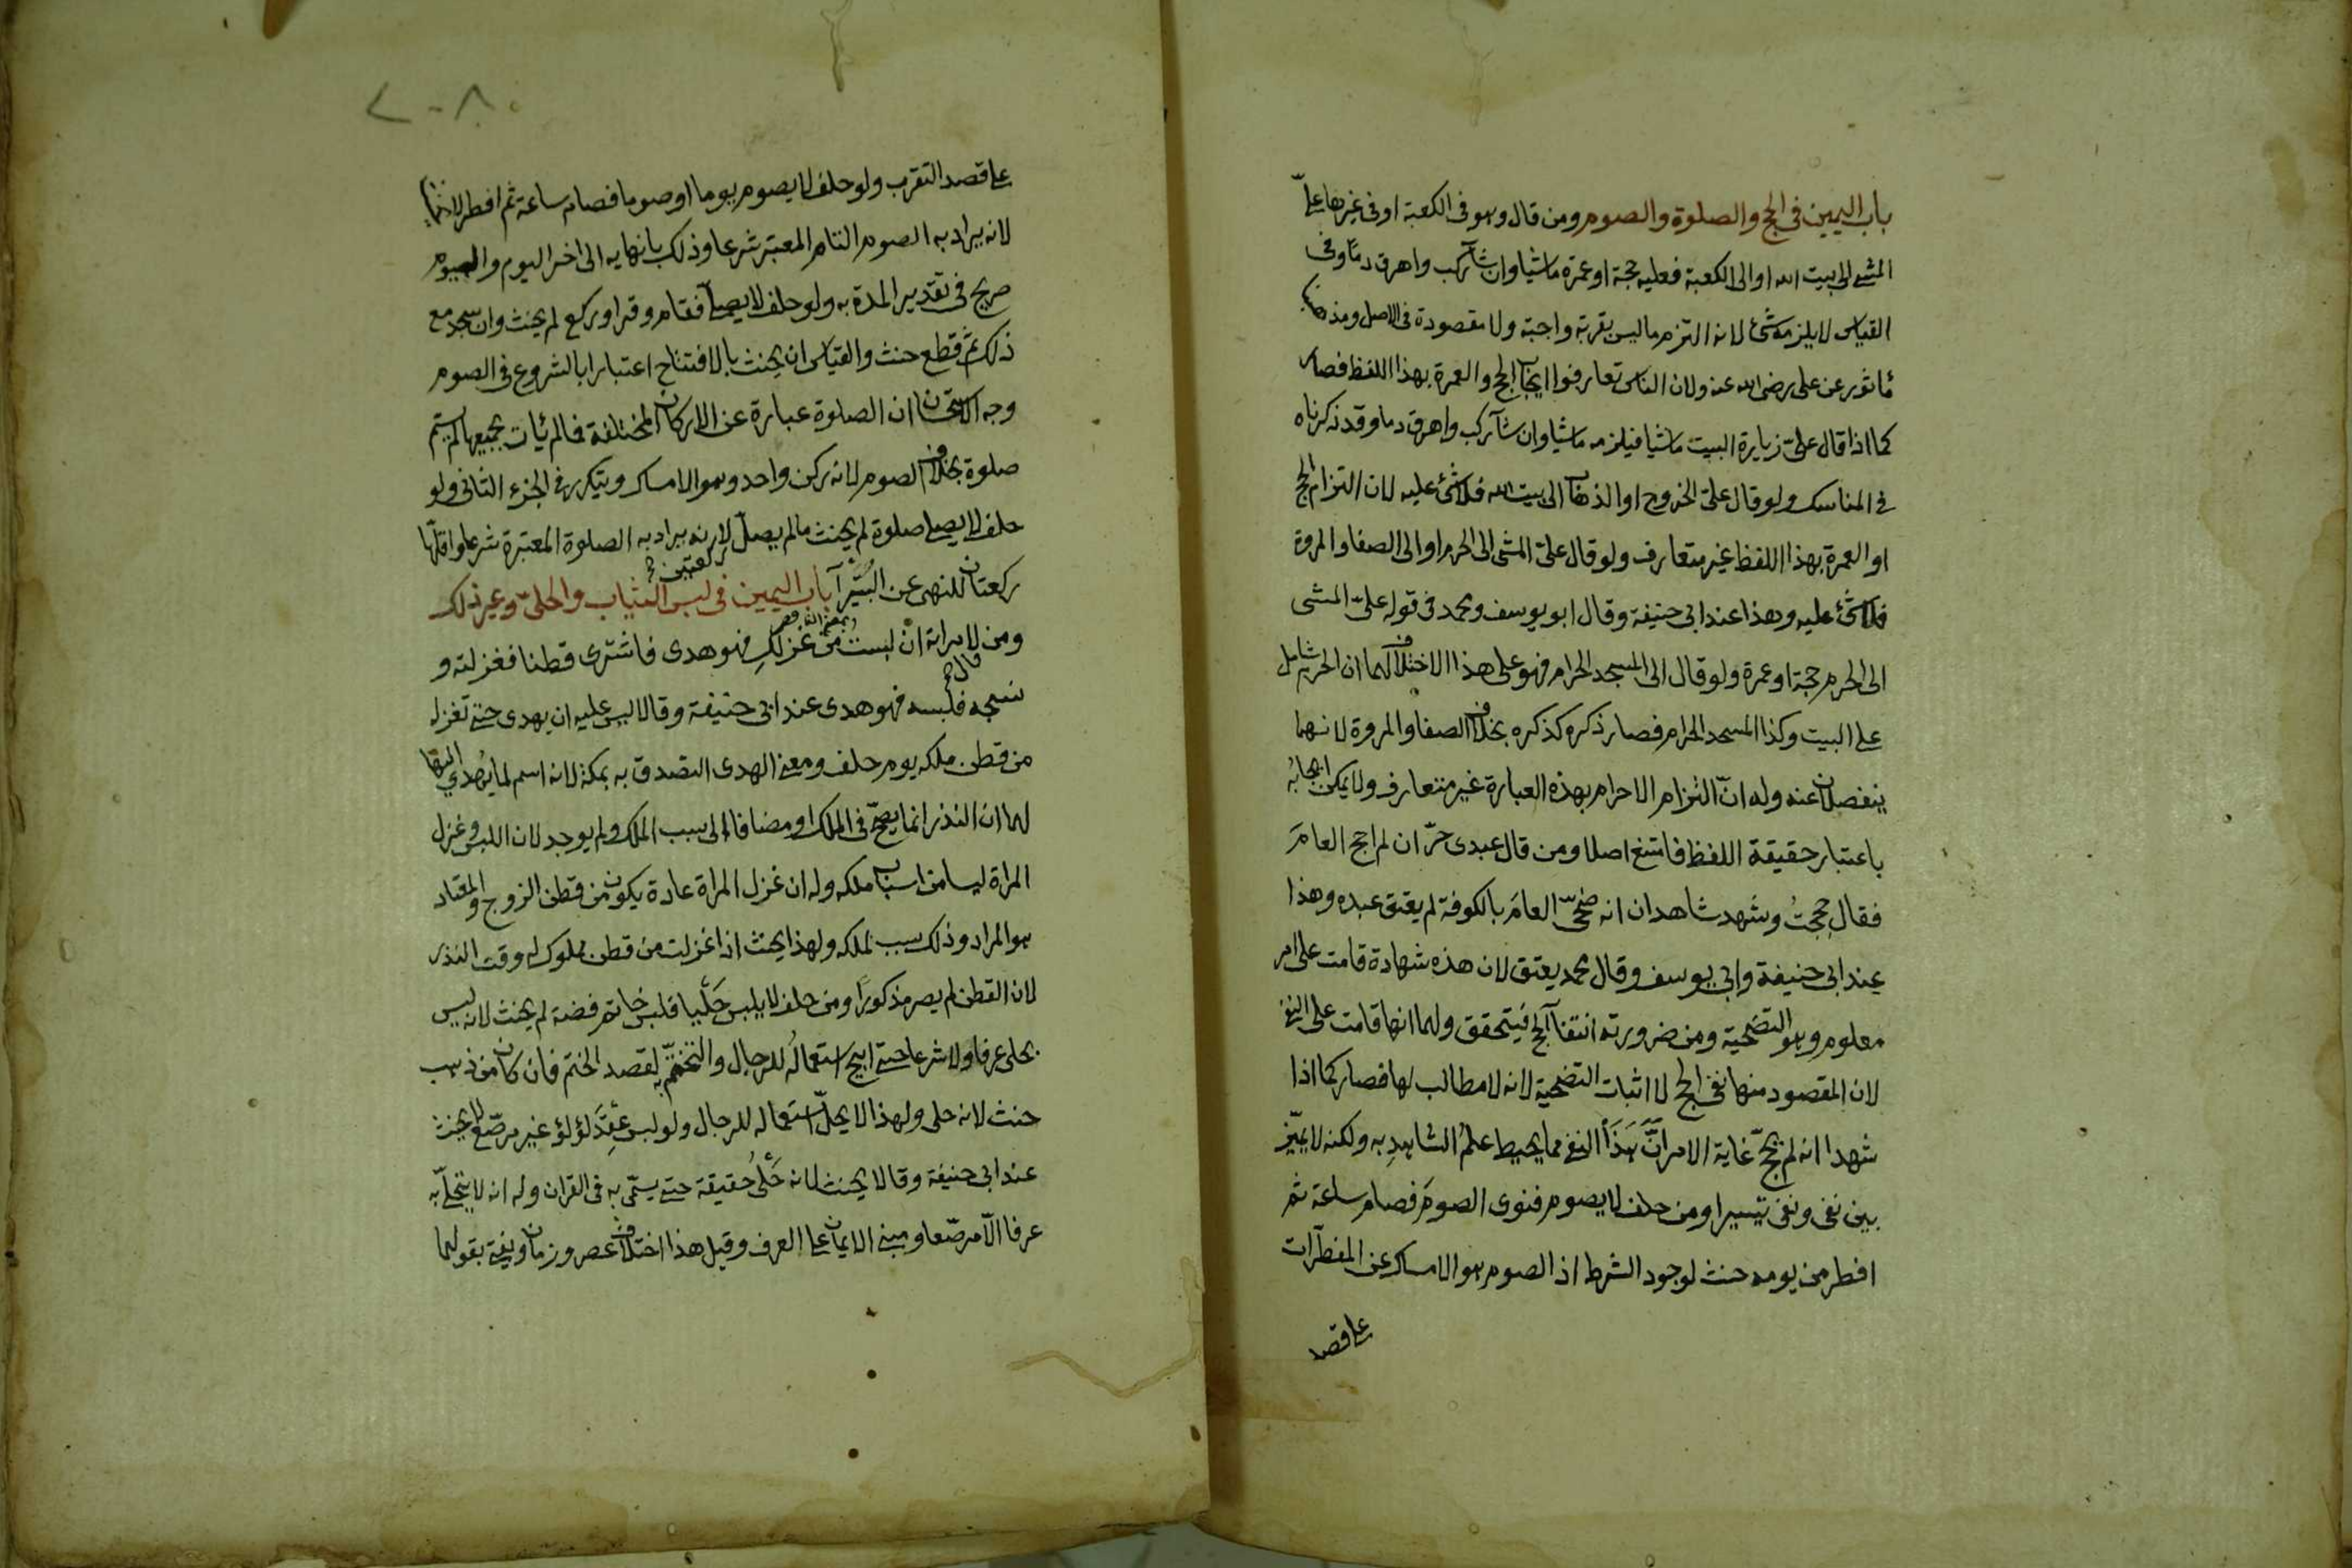 باب اليمين في الحج والصلوة والصوم ومن قال وهو في الكعبة او في غيرها علىّ
المشي الى بيت الله او الى الكعبة فعليه حجة او عمرة ماشيا وان شآ ركب واهرق دمًا وفي
القياس لا يلزمه شئ لانه التزم ما ليس بقربة واجبة ولا مقصودة في الاصل ومذهبنا
مأثور عن على رضى الله عنه ولان الناس تعارفوا ايجاب الحج والعمرة بهذا اللفظ فصار
كما اذا قال علىّ زيارة البيت ماشيا فيلزمه ماشيا وان شآ ركب واهرق دما وقد ذكرناه
في المناسك ولو قال علىّ الخروج او الذهاب الى بيت الله فلا شئ عليه لان التزام الحج
او العمرة بهذا اللفظ غير متعارف ولو قال علىّ المشى الى الحرم او الى الصفا والمروة
فلا شئ عليه وهذا عند ابي حنيفة وقال ابو يوسف ومحمد في قوله علىّ المشى
الى الحرم حجة او عمرة ولو قال الى المسجد الحرام فهو على هذا الاختلاف لهما ان الحرم شامل
على البيت وكذا المسجد الحرام فصار ذكره كذكره بخلاف الصفا والمروة لانهما
ينفصلان عنه وله انّ التزام الاحرام بهذه العبارة غير متعارف ولا يمكن ايجابُه
باعتبار حقيقة اللفظ فامتنع اصلا ومن قال عبدى حرّ ان لم احج العامَ
فقال حججتُ وشهد شاهدان انه ضحّى العامَ بالكوفة لم يعتق عبده وهذا
عند ابي حنيفة وابي يوسف وقال محمد يعتق لان هذه شهادة قامت على امر
معلوم وهو التضحية ومن ضرورته انتفآ الحج فيتحقق ولهما انها قامت على النفي
لان المقصود منها نفي الحج لا اثبات التضحية لانه لا مطالب لها فصار كما اذا
شهدا انه لم يحجّ غاية الامر انّ هَذَا النفى مما يحيط علمُ الشاهدِ به ولكنه لا يميّز
بين نفى ونفى تيسيرا ومن حلف لا يصوم فنوى الصومَ فصام ساعة ثم
افطر من يومه حنث لوجود الشرط اذ الصوم هو الامساك عن المفطّرات
على قصد
على قصد التقرب ولو حلف لا يصوم يوما او صوما فصام ساعة ثم افطر لا يحنث
لانه يراد به الصوم التام المعتبر شرعا وذلك بانهايه الى اخر اليوم واليوم
صريح في تقدير المدة به ولو حلف لا يصلى فقام وقرا وركع لم يحنث وان سجد مع
ذلك ثم قطع حنث والقياس ان يحنث بالافتتاح اعتبارا بالشروع في الصوم
وجه الاستحسان ان الصلوة عبارة عن الاركان المختلفة فما لم يأت بجميعها لم يتم
صلوة بخلاف الصوم لانه ركن واحد وهو الامساك ويتكرر في الجزء الثانى ولو
حلف لا يصلى صلوة لم يحنث ما لم يصلّ ركعتين لانه يراد به الصلوة المعتبرة شرعا واقلّها
ركعتان للنهى عن البُتَيرآ باب اليمين في لبس الثياب والحلىّ وغير ذلك
ومن قال لامراته ان لبست من غزلكِ فهو هدى فاشترى قطنا فغزلته و
نسجه فلبسه فهو هدى عند ابي حنيفة وقالا ليس عليه ان يهدى حتى تغزل
من قطن ملكه يوم حلف ومعنى الهدى التصدق به بمكة لانه اسم لما يُهدي اليها
لهما ان النذر انما يصحّ في الملك او مضافا الى سبب الملك ولم يوجد لان اللبس وغزل
المراة ليسا من اسباب ملكه وله ان غزل المراة عادة يكون من قطن الزوج والمعتاد
هو المراد وذلك سبب لملكه ولهذا يحنث اذا غزلت من قطن مملوك له وقت النذر
لان القطن لم يصر مذكورًا ومن حلف لا يلبس حَلْيا فلبس خاتم فضة لم يحنث لانه ليس
بحلى عرفا ولا شرعا حتى ابيح استعمالُه للرجال والتختّم به لقصد الختم فان كان من ذهب
حنث لانه حلى ولهذا لا يحلّ استعماله للرجال ولو لبس عِقْدَ لؤلؤ غير مرصّع لا يحنث
عند ابي حنيفة وقالا يحنث لانه حَلْىُ حقيقة حتى يسمّى به في القران وله انه لا يتحلّى به
عرفا الّا مرصّعا ومبنى الايمان على العرف وقيل هذا اختلاف عصر وزمان ويفتى بقولهما